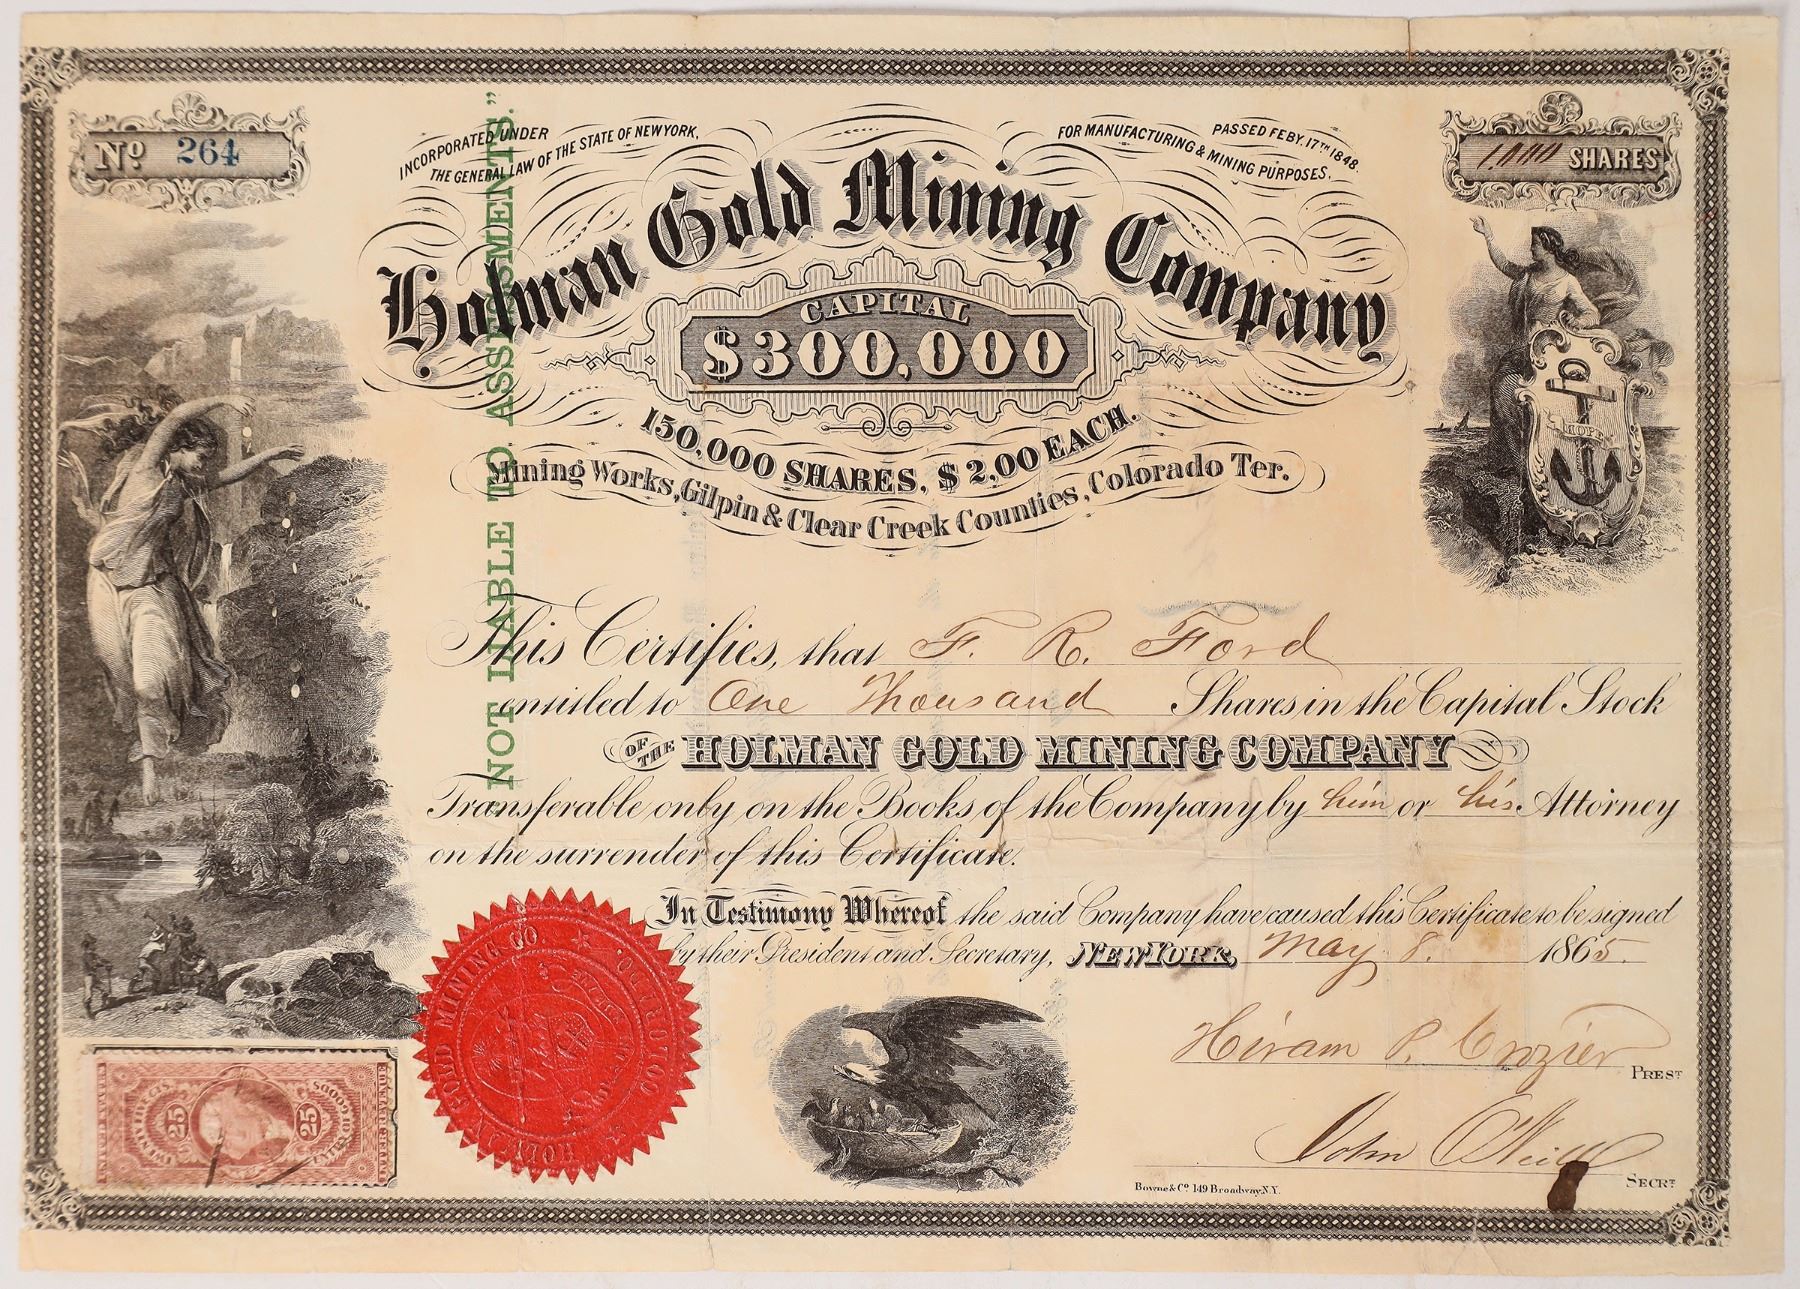 Nº 264
INCORPORATED UNDER
THE GENERAL LAW OF THE STATE OF NEW YORK,
FOR MANUFACTURING & MINING PURPOSES,
PASSED FEBY. 17TH 1848.
1,000 SHARES
Holman Gold Mining Company
CAPITAL
$300,000
150,000 SHARES, $2,00 EACH.
Mining Works, Gilpin & Clear Creek Counties, Colorado Ter.
HOPE
"NOT LIABLE TO ASSESSMENTS."
This Certifies, that F. R. Ford
entitled to One Thousand Shares in the Capital Stock
OF THE HOLMAN GOLD MINING COMPANY
Transferable only on the Books of the Company by him or his Attorney
on the surrender of this Certificate.
In Testimony Whereof the said Company have caused this Certificate to be signed
by their President and Secretary, NEW YORK, May 8. 1865.
Hiram P. Crozier PREST
John O'Neill SECRT
Bowne & Cº 149 Broadway N.Y.
HOLMAN GOLD MINING CO.
COLORADO
25 25
TWENTY FIVE CTS